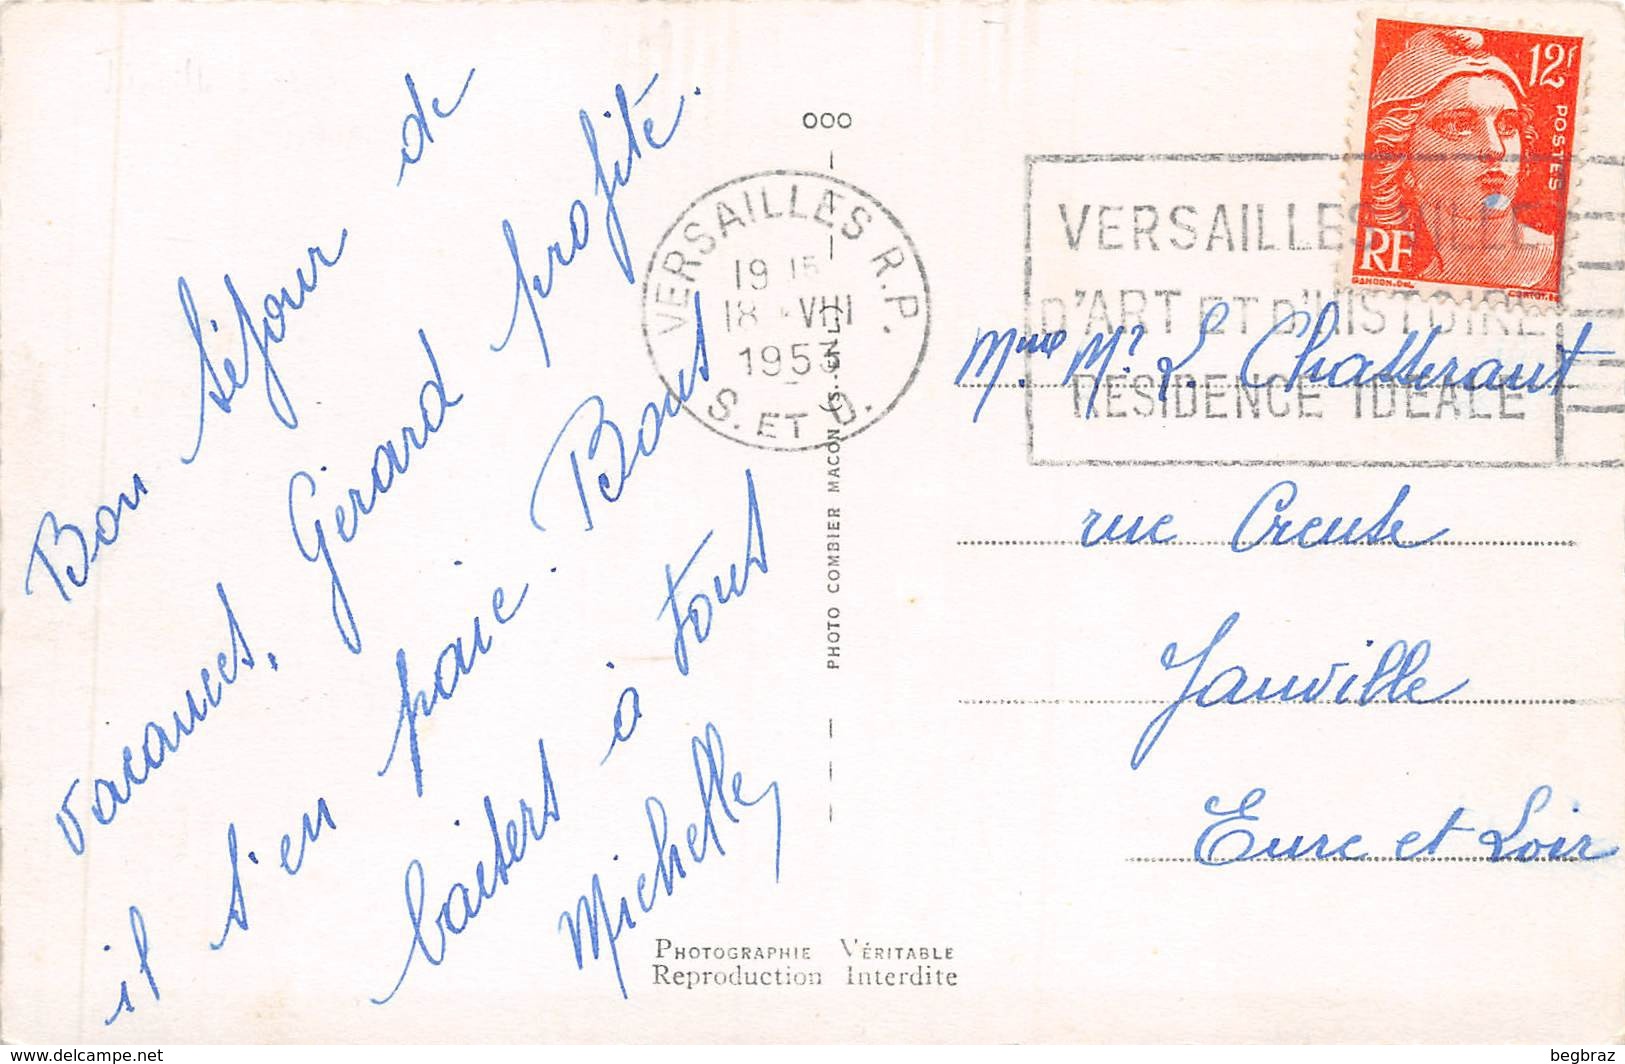 Bon séjour de
vacances. Gérard profite
il s'en paie. Bons
baisers à tous
Michelle
OOO
VERSAILLES R.P.
19 15
18 - VIII
1953
S. ET O.
PHOTO COMBIER MACON (S.-EN-L.)
PHOTOGRAPHIE VÉRITABLE
Reproduction Interdite
12F
POSTES
RF
GANDON. DEL.
CORTOT. SC
VERSAILLES VILLE
D'ART ET D'HISTOIRE
RESIDENCE IDEALE
Mme Mr L.
rue Creuse
Janville
Eure et Loir
begbraz